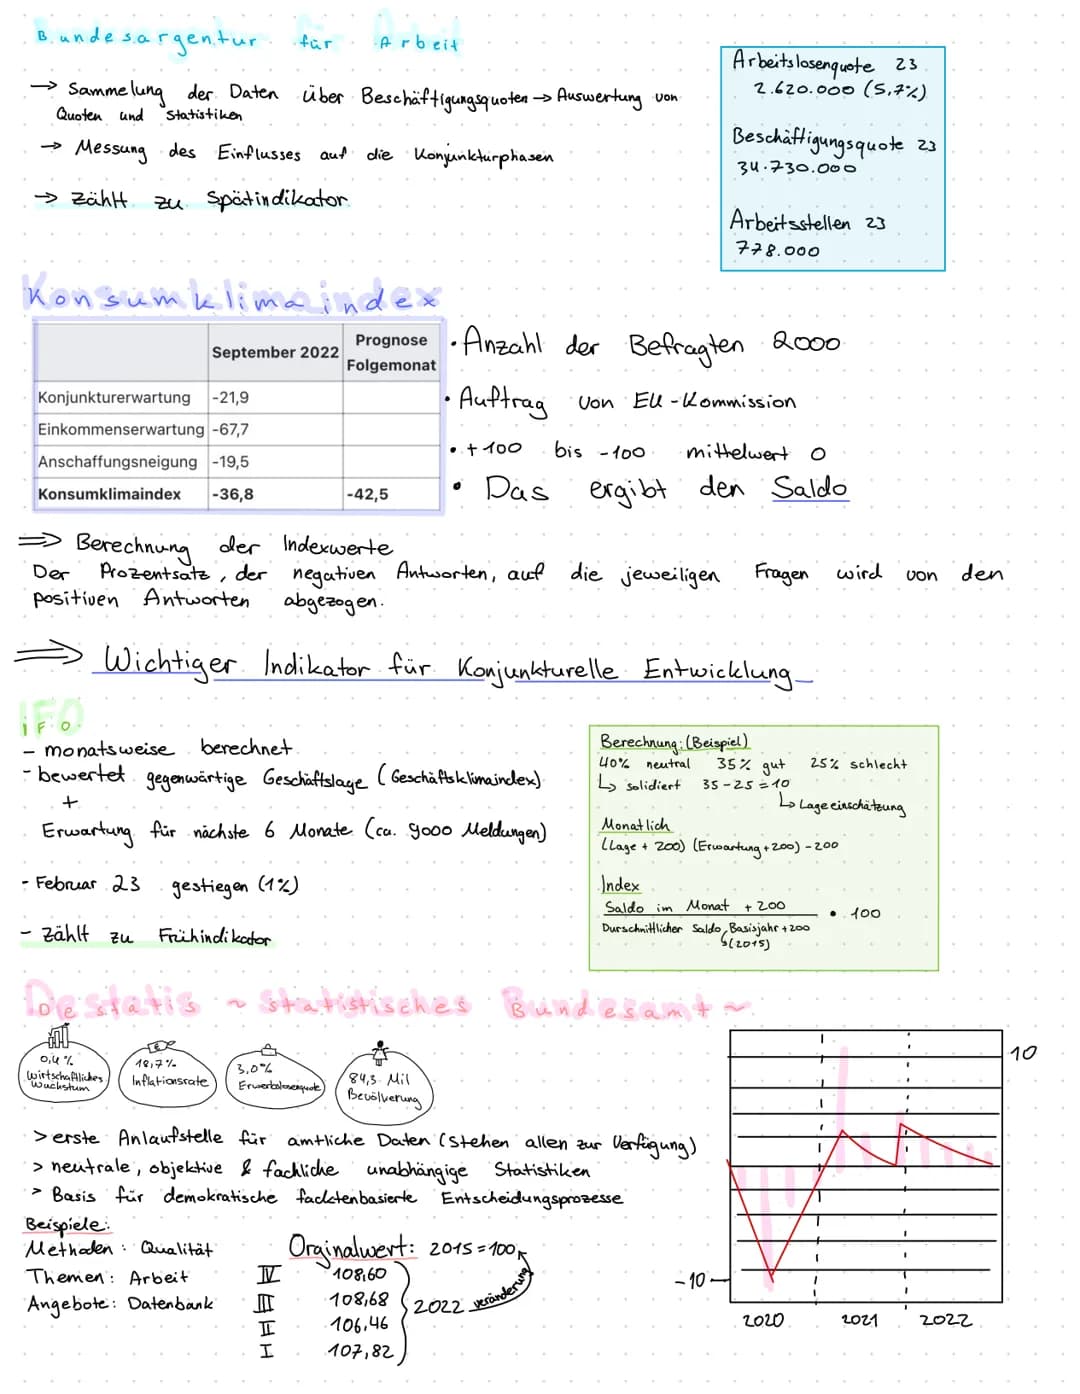 Bundesargentur für Arbeit
→ Sammelung der Daten über Beschäftigungsquoten → Auswertung von
Quoten und Statistiken
→ Messung des Einflusses auf die Konjunkturphasen
→ zählt zu Spätindikator
Arbeitslosenquote 23
2.620.000 (5,7%)
Beschäftigungsquote 23
34.730.000
Arbeitsstellen 23
778.000
Konsumklimaindex
September 2022 Prognose Folgemonat
Konjunkturerwartung -21,9
Einkommenserwartung -67,7
Anschaffungsneigung -19,5
Konsumklimaindex -36,8 -42,5
• Anzahl der Befragten 2000
• Auftrag von EU-Kommission
• +100 bis -100 mittelwert 0
• Das ergibt den Saldo
⇒ Berechnung der Indexwerte
Der Prozentsatz, der negativen Antworten, auf die jeweiligen Fragen wird von den
positiven Antworten abgezogen.
⇒ Wichtiger Indikator für Konjunkturelle Entwicklung
iFO
- monatsweise berechnet
- bewertet gegenwärtige Geschäftslage (Geschäftsklimaindex)
+
Erwartung für nächste 6 Monate (ca. 9000 Meldungen)
- Februar 23 gestiegen (1%)
- zählt zu Frühindikator
Berechnung: (Beispiel)
40% neutral 35% gut 25% schlecht
↳ solidiert 35-25=10
↳ Lageeinschätzung
Monatlich
(Lage + 200) (Erwartung + 200) - 200
Index
Saldo im Monat + 200
• 100
Durschnittlicher Saldo, Basisjahr + 200
↳(2015)
Destatis ~ Statistisches Bundesamt ~
0,4 %
wirtschaftliches
Wachstum
18,7%
Inflationsrate
3,0%
Erwerbslosenquote
84,3 Mil
Bevölverung
> erste Anlaufstelle für amtliche Daten (stehen allen zur Verfügung)
> neutrale, objektive & fachliche unabhängige Statistiken
> Basis für demokratische facktenbasierte Entscheidungsprozesse
Beispiele:
Methoden: Qualität
Themen: Arbeit
Angebote: Datenbank
Orginalwert: 2015=100
IV 108,60
III 108,68
II 106,46
I 107,82
2022 veränderung
10
-10
2020 2021 2022